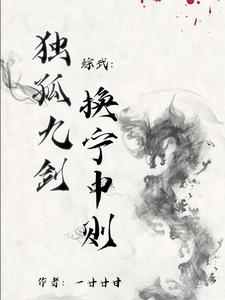 独孤九剑
综武：
换宁中则
作者：一廿廿甘